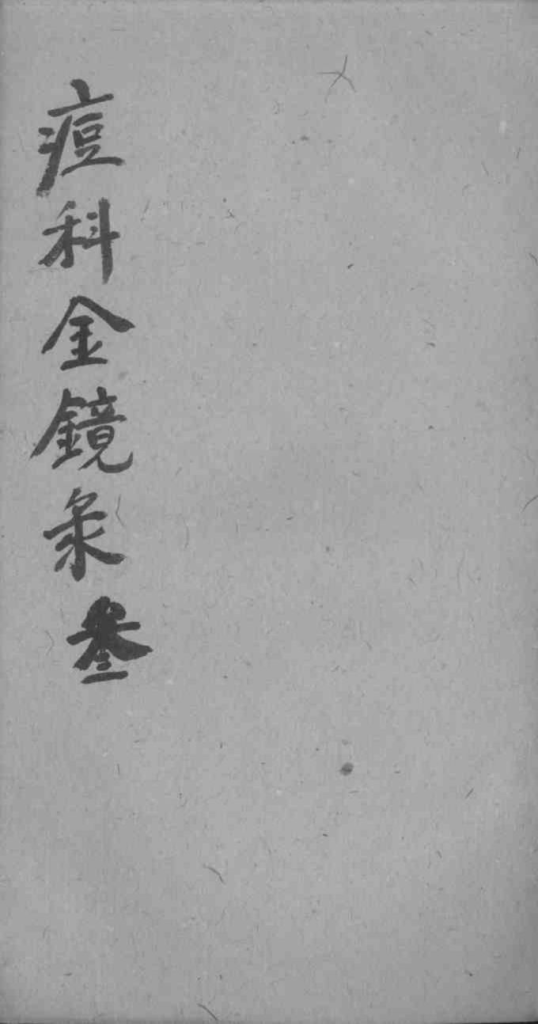 痘科金鏡录叁